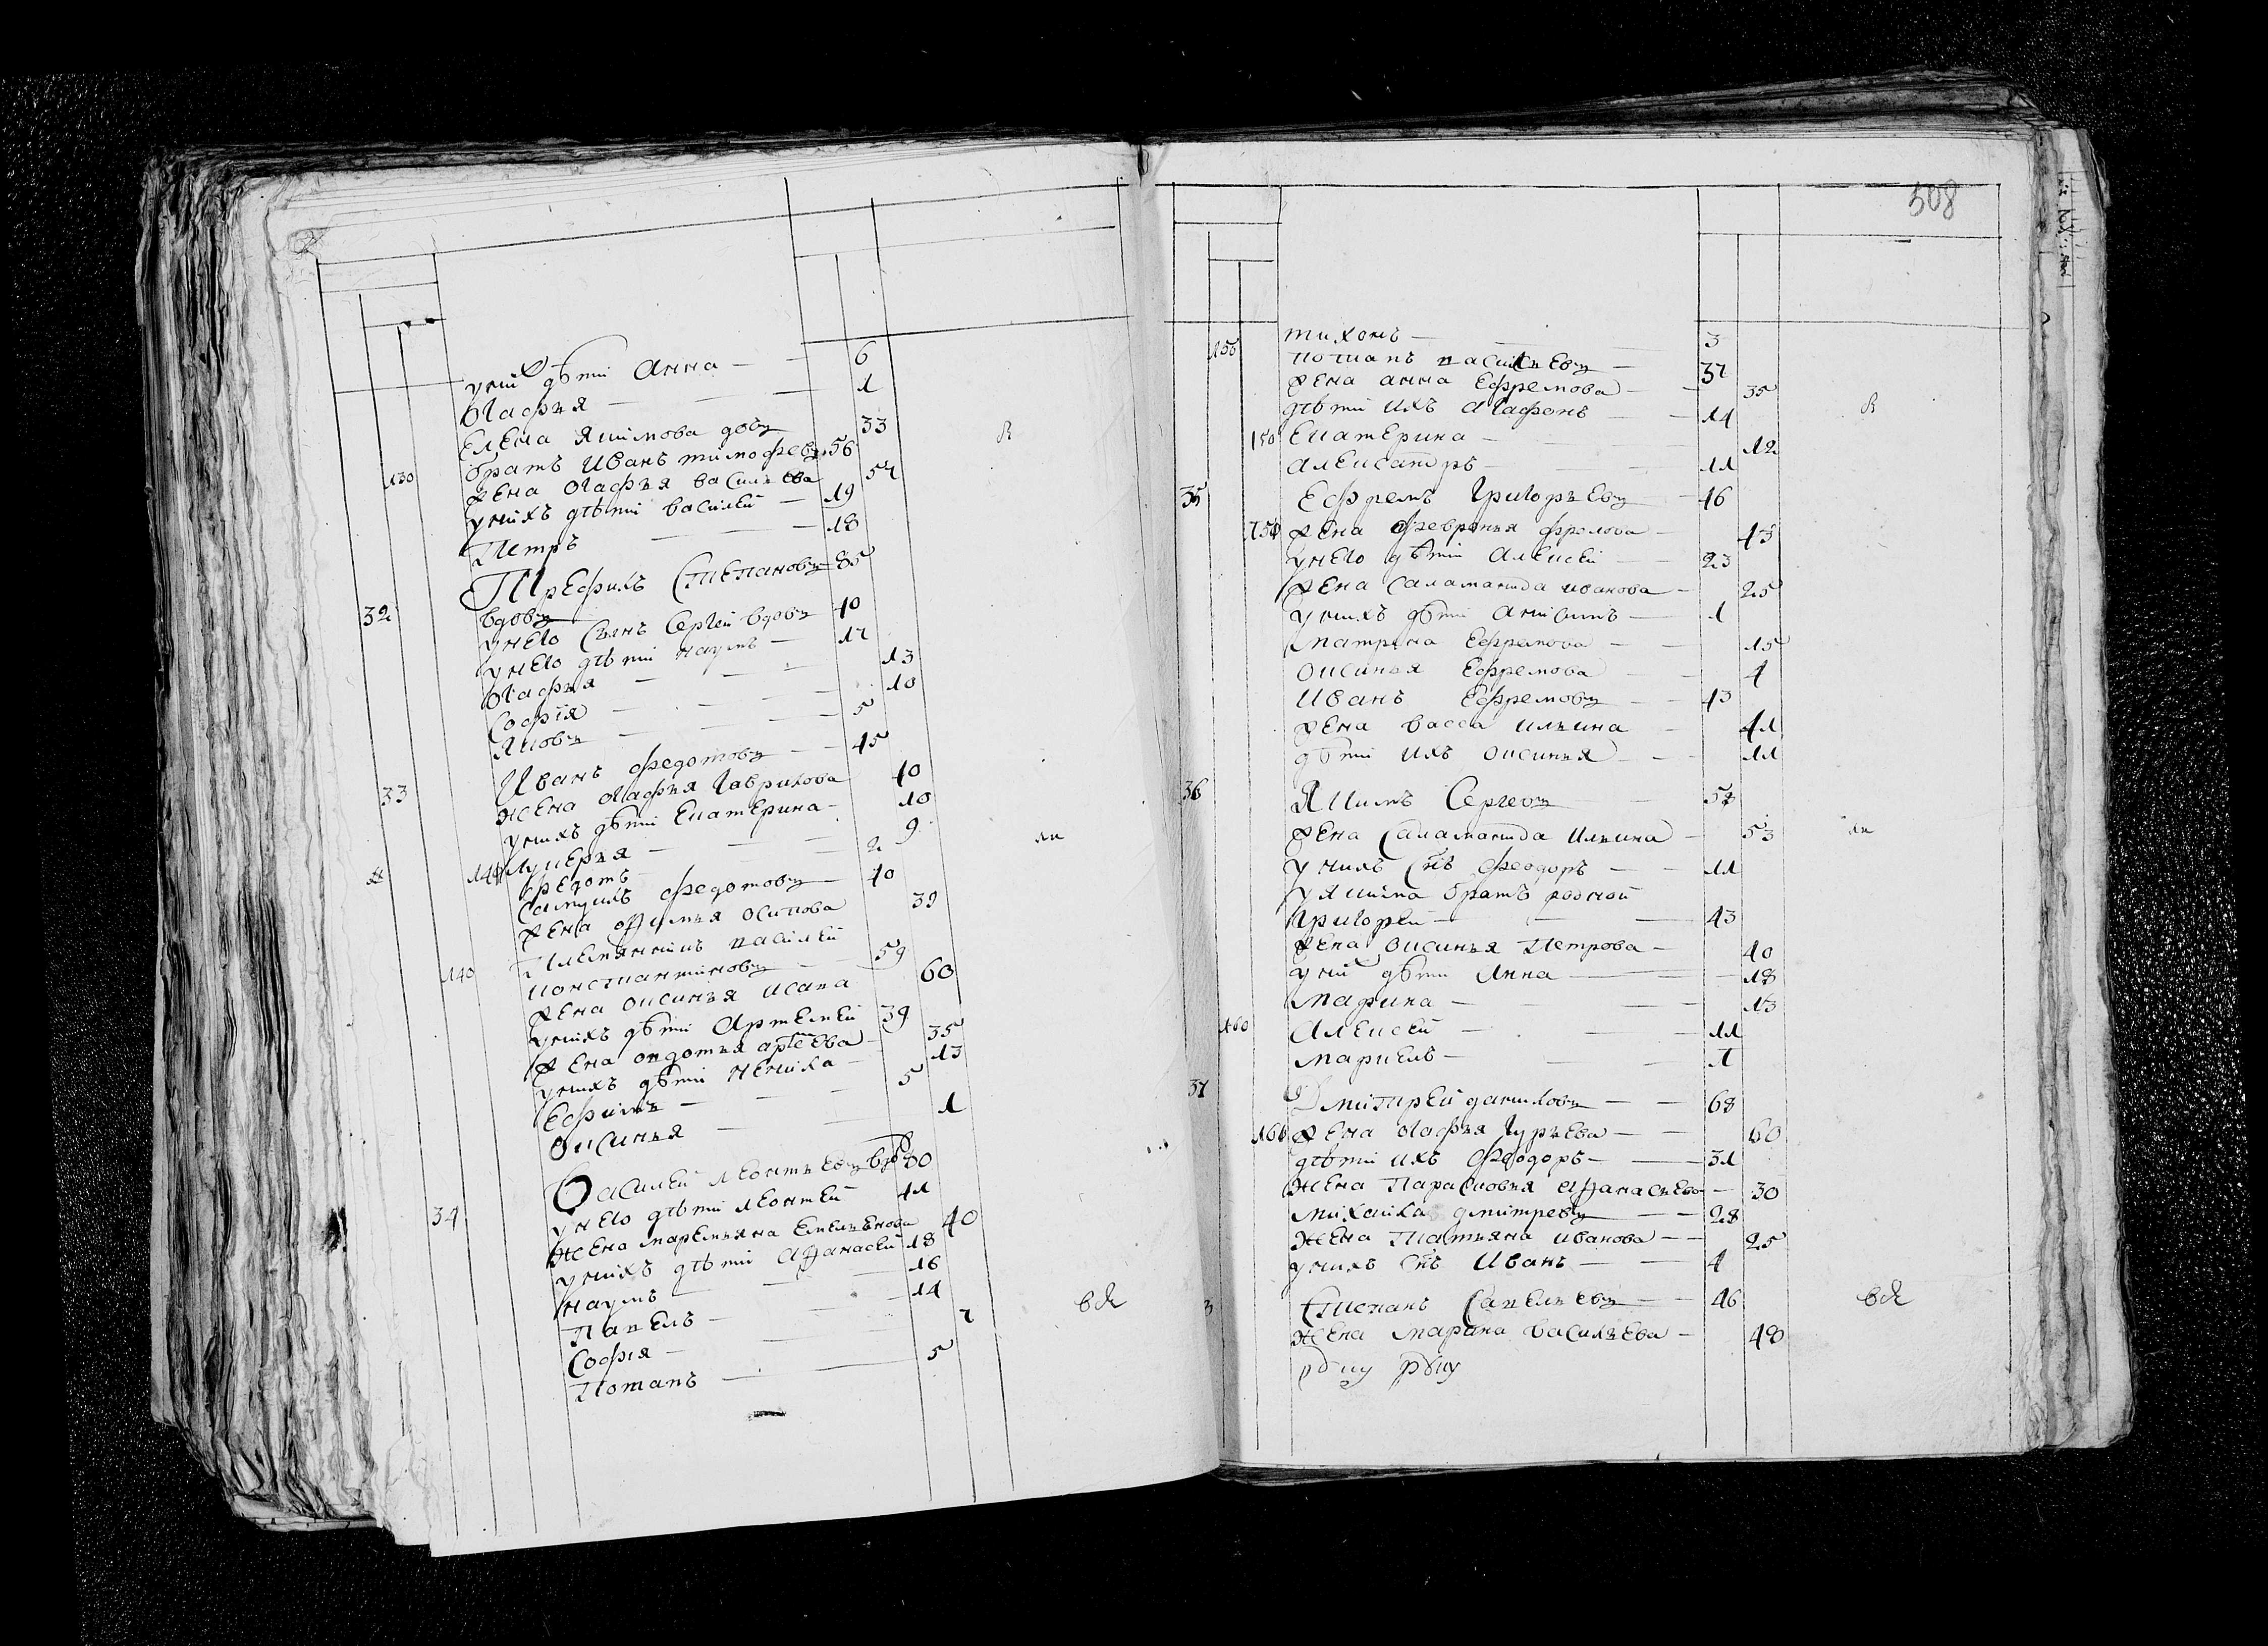 у них дѣти Анна — 6
Огафья — 1
Елена Якимова довъ 33
братъ Иванъ тимофѣевъ 56
130 жена Огафья васильева 54
у нихъ дѣти василей — 19
Петръ — 18
32 Трефилъ Степановъ 85
вдовъ
у него сынъ Сергей вдовъ 40
у него дѣти наумъ — 17
Огафья — 13
Софiя — 10
Яковъ — 5
33 Иванъ федотовъ — 45
жена Огафья Гаврилова 40
у нихъ дѣти Екатерина — 10
Лукерья — 9
федотъ — 2
Самуилъ федотовъ — 40
жена осипова 39
140 Племянникъ василей
константиновъ — 59
жена оксинья 60
у нихъ дѣти Артемей 39
жена овдотья 35
у нихъ дѣти 13
Ефимъ — 5
Оксинья — 1
34 Василей леонтьевъ 80
у него дѣти леонтей 41
жена маремьяна Емельенова 40
у нихъ дѣти Афанасей 18
наумъ — 16
Павелъ — 14
Софiя — 7
Потапъ — 5
508
тихонъ — 3
потапъ васильевъ — 37
жена анна Ефремова — 35
дѣти ихъ Агафонъ — 14
150 Екатерина — 12
Александръ — 11
35 Ефремъ Григорьевъ — 46
жена февронья фролова — 43
у него дѣти Алексей — 23
жена Саламанида иванова — 25
у нихъ дѣти Анисимъ — 1
матрена Ефремова — 15
оксинья Ефремова — 4
Иванъ Ефремовъ — 43
жена васса ильина — 41
дѣти ихъ оксинья — 11
36 Якимъ Сергеевъ — 58
жена Саламанида Ильина — 53
у нихъ снъ феодоръ — 11
у якима братъ родной
Григорей — 43
жена оксинья Петрова — 40
у них дѣти Анна — 18
марина — 13
160 Алексей — 11
маркелъ — 1
37 Дмитрей даниловъ — 68
жена Огафья Гурьева — 60
дѣти ихъ феодоръ — 31
жена Парасковья Афанасьева — 30
михайла дмитревъ — 28
жена Татьяна иванова — 25
у нихъ снъ Иванъ — 4
3 Степанъ Савельевъ — 46
жена марина васильева — 48